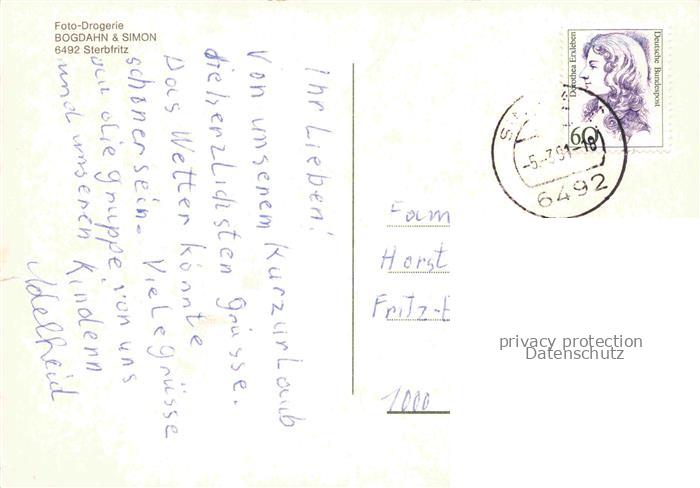 Foto-Drogerie
BOGDAHN & SIMON
6492 Sterbfritz
Ihr Lieben!
Von unserem Kurzurlaub
die herzlichsten Grüsse.
Das Wetter könnte
schöner sein. Viele Grüsse
an die Gruppe von uns
und unseren Kindern
Adelheid
Deutsche Bundespost
Dorothea Erxleben
60
6492
Fam
Horst
Fritz-
1000
privacy protection
Datenschutz